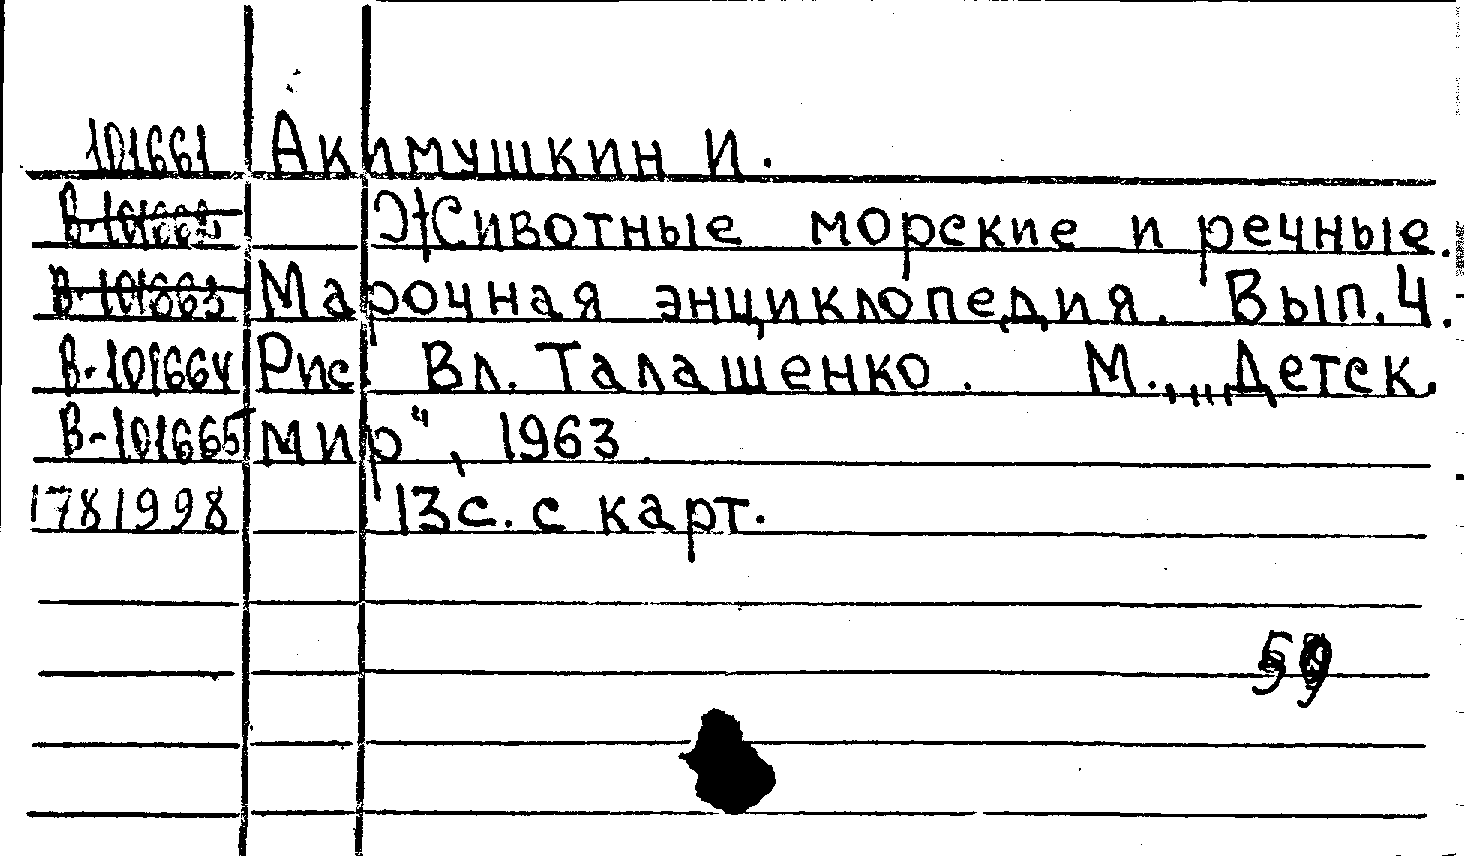 101661 Акимушкин И.
В-101662 Животные морские и речные.
В-101663 Марочная энциклопедия. Вып. 4.
В-101664 Рис. Вл. Талашенко. М., „Детск.
В-101665 мир“, 1963.
1781998 13с. с карт.
59